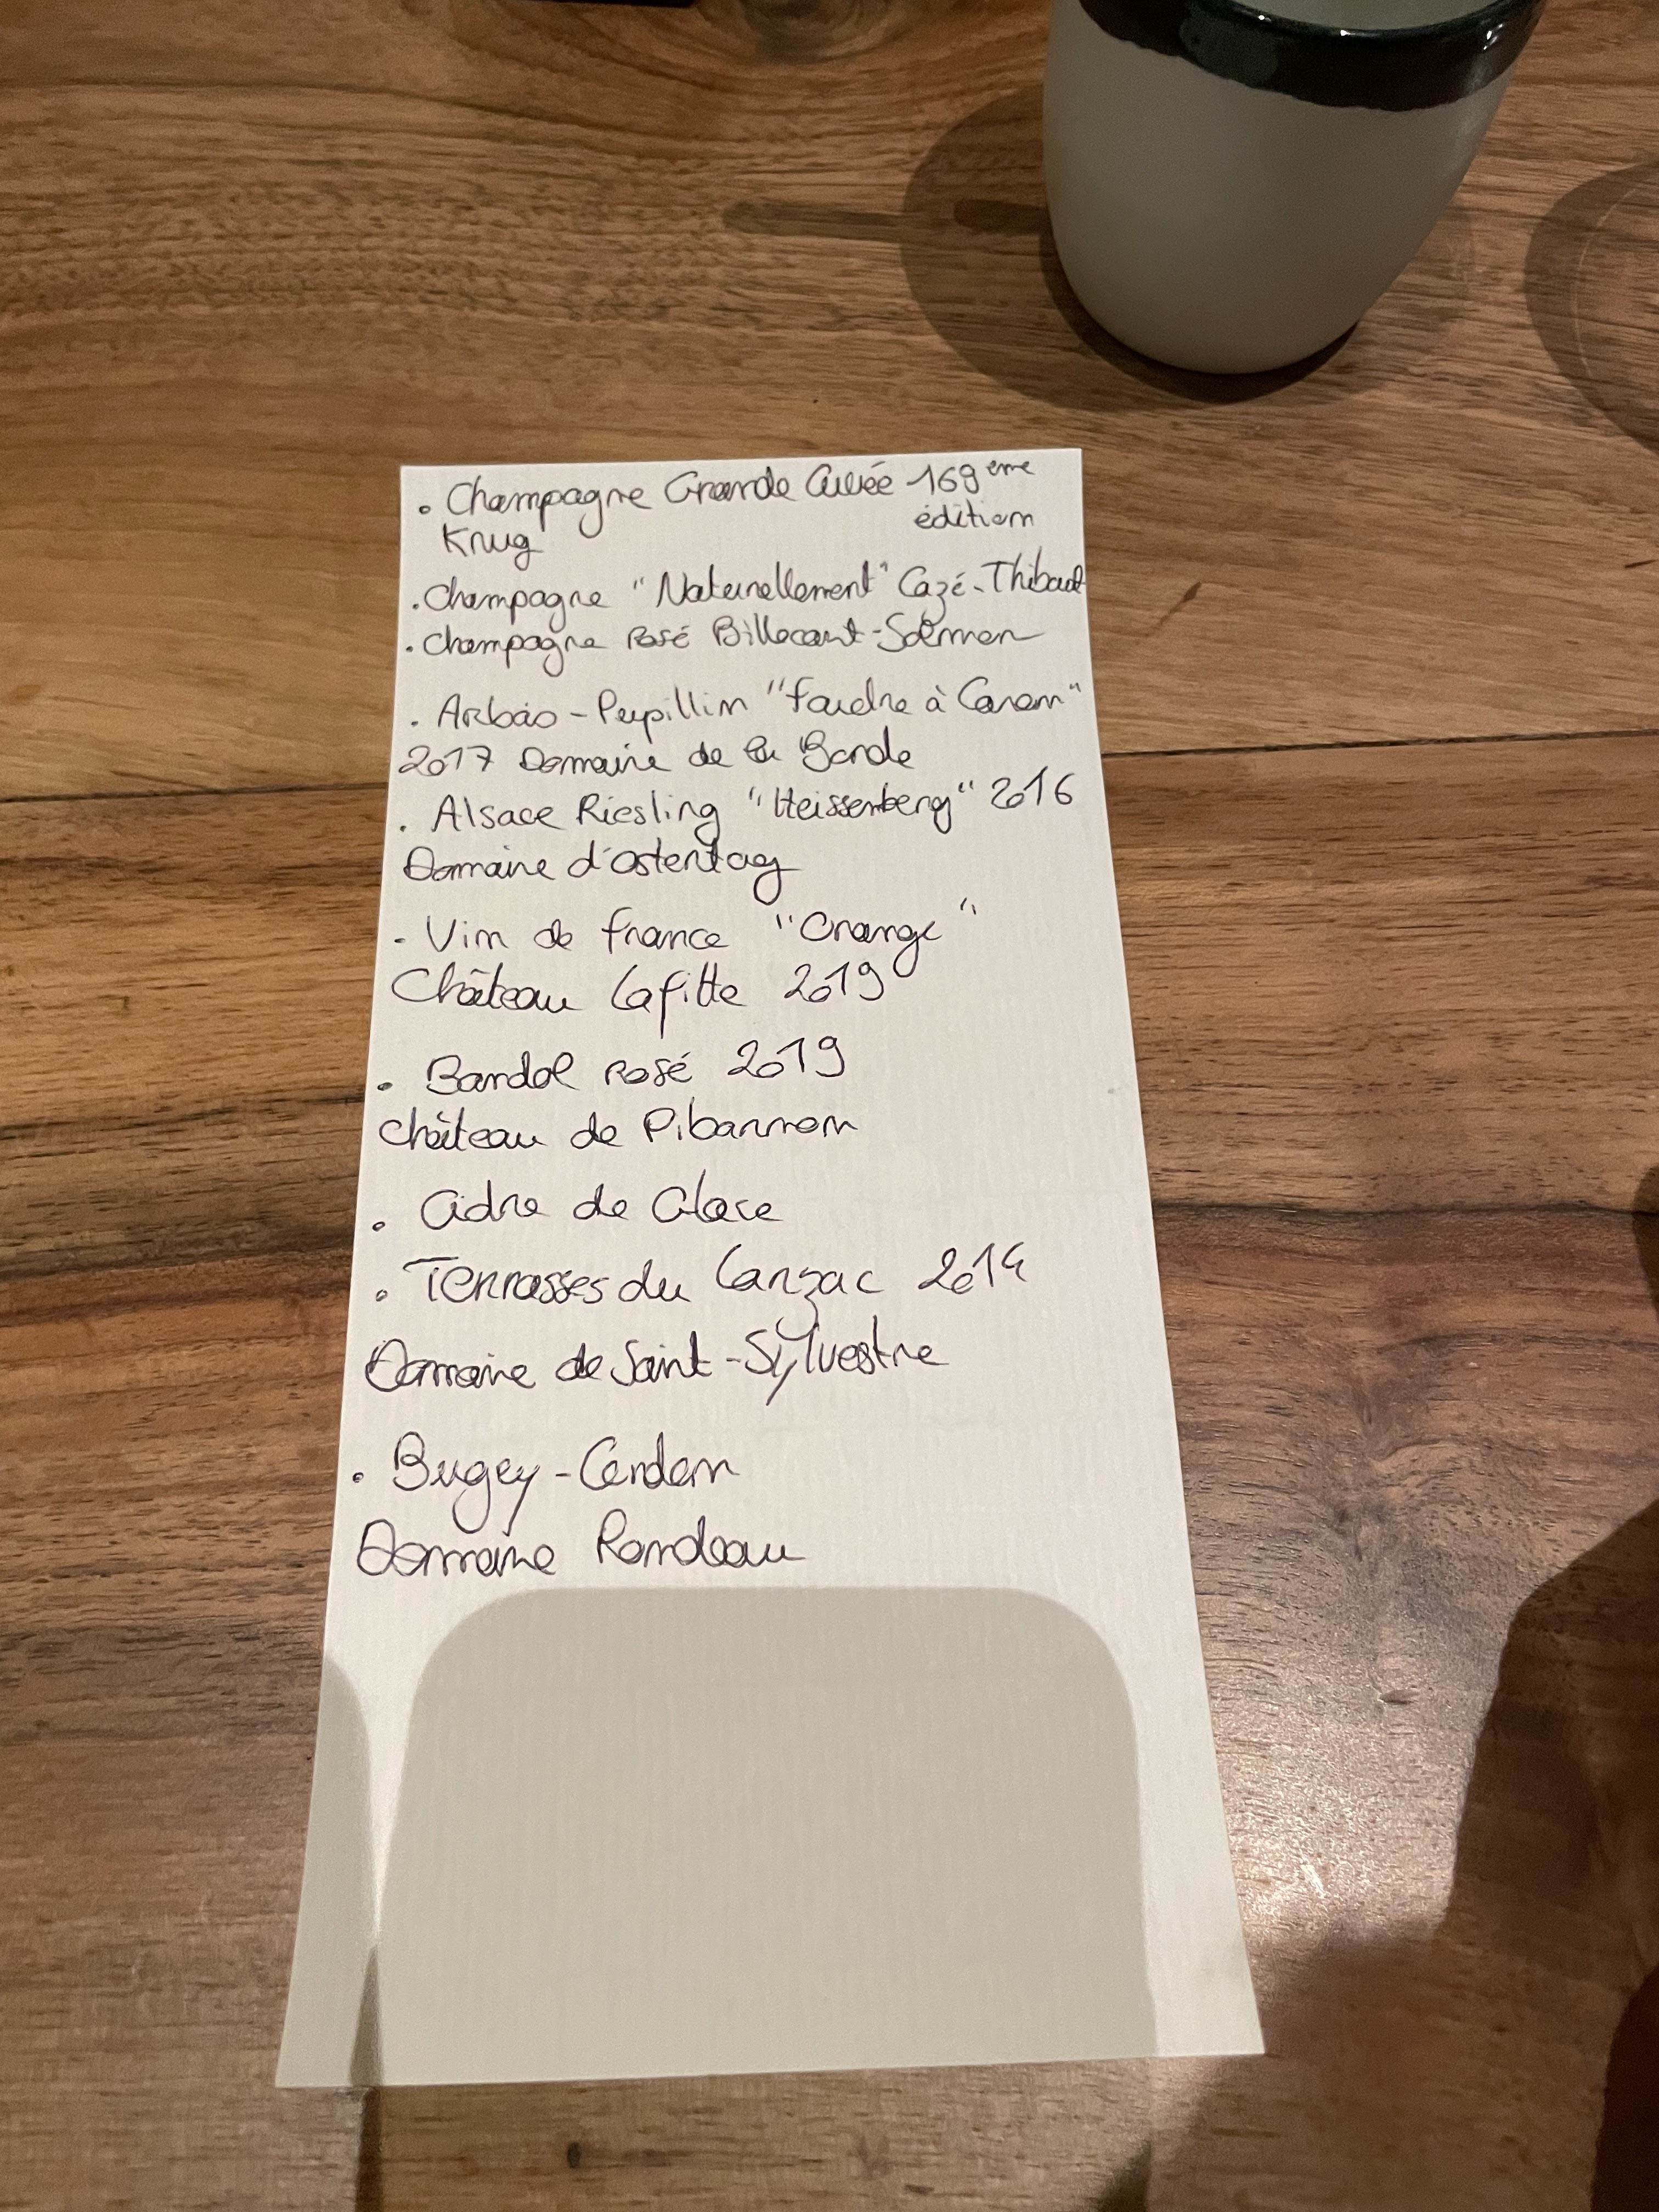 . Champagne Grande Cuvée 169ème
édition
Krug
. Champagne "Naturellement" Cazé-Thibaut
. Champagne rosé Billecart-Salmon
. Arbois-Pupillin "Foudre à Canon"
2017 Domaine de la Borde
. Alsace Riesling "Heissenberg" 2016
Domaine d'Ostertag
- Vin de France "Orange"
Château Lafitte 2019
. Bandol rosé 2019
Château de Pibarnon
. Cidre de Glace
. Terrasses du Larzac 2014
Domaine de Saint-Sylvestre
. Bugey-Cerdon
Domaine Rondeau